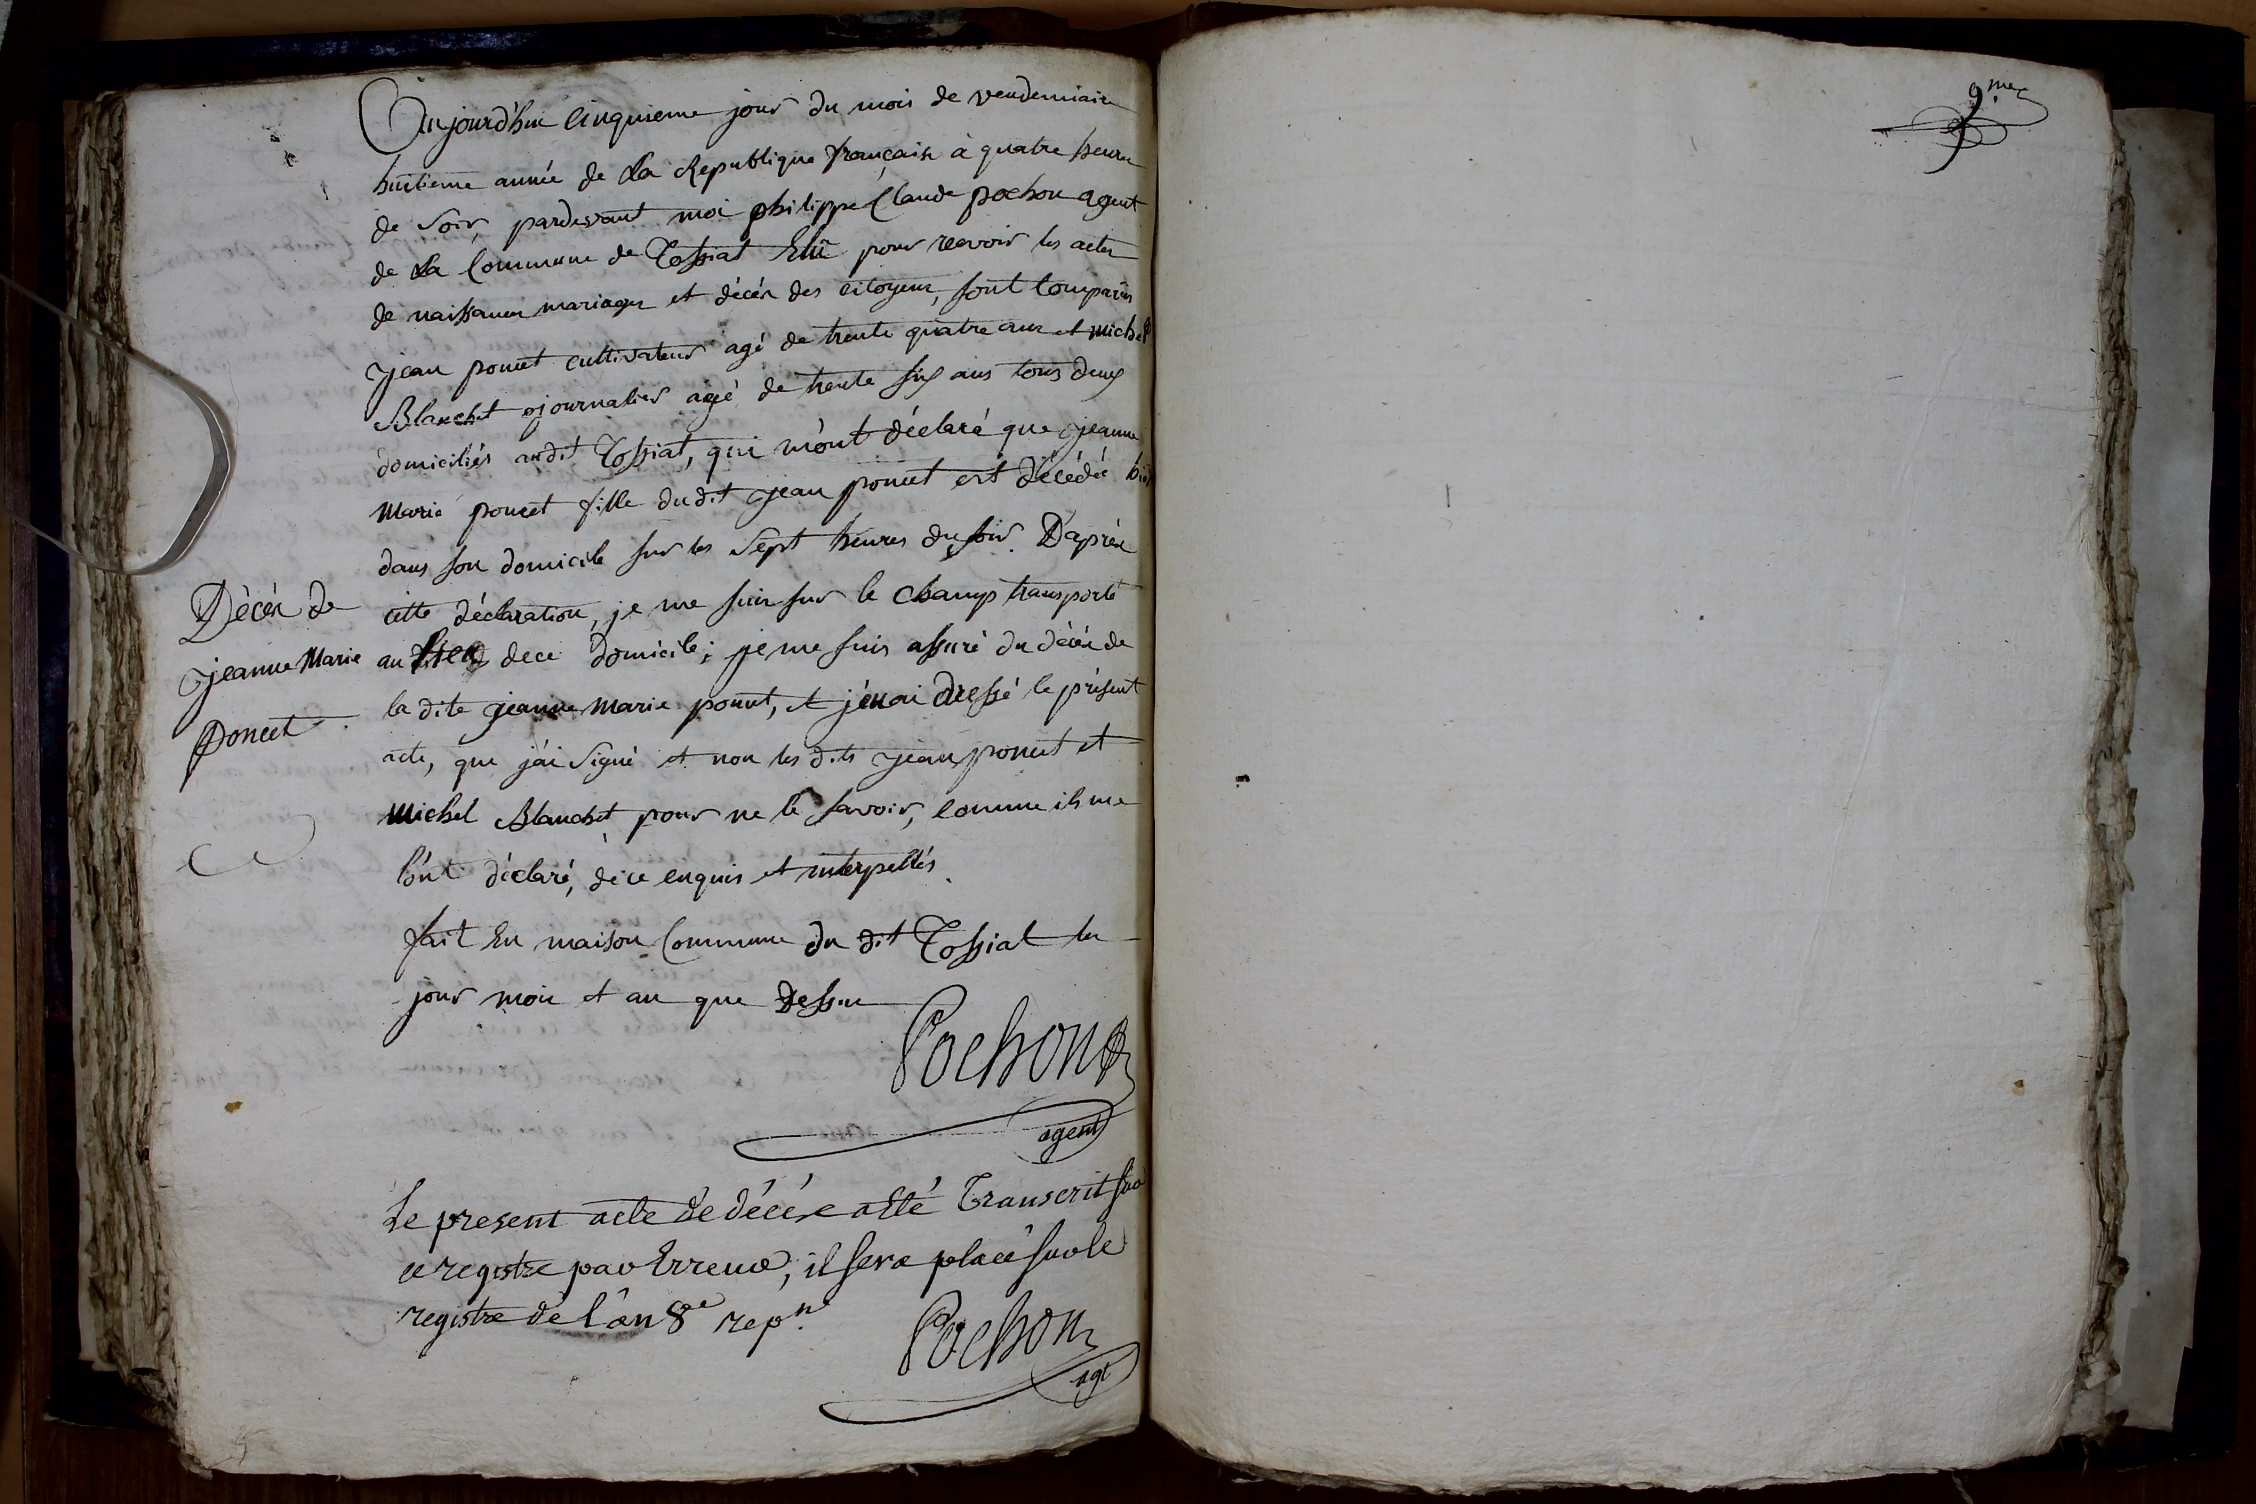 Aujourd'huy cinquieme jour du mois de vendemiaire
huitieme année de la Republique française à quatre heures
de soir, pardevant moi philippe Claude pochon agent
de la Commune de Tossiat Elû pour recevoir les actes
de naissances mariages et décés des citoyens, sont comparûs
jean poncet cultivateur agé de trente quatre ans et michel
Blanchet journalier agé de trente six ans tous deux
domiciliés audit Tossiat, qui m'ont déclaré que jeanne
Marie poncet fille dudit jean poncet est décédée hier
dans son domicile sur les sept heures du soir. D'aprés
cette déclaration, je me suis sur le champs transporté
au lieu de ce domicile; je me suis assuré du décés de
la dite jeanne Marie poncet, et j'en ai dressé le présent
acte, que j'ai signé et non les dits jean poncet et
Michel Blanchet pour ne le savoir, comme ils me
l'ont déclaré, de ce enquis et interpellés.
fait En maison Commune du dit Tossiat les
jour mois et an que dessus
Pochon
agent
Décés de
jeanne Marie
Poncet
Le present acte de décés a Eté Transcrit sur
ce registre par Erreur, il sera placé sur le
registre de l'an 8e repn.
Pochon
agt
9me